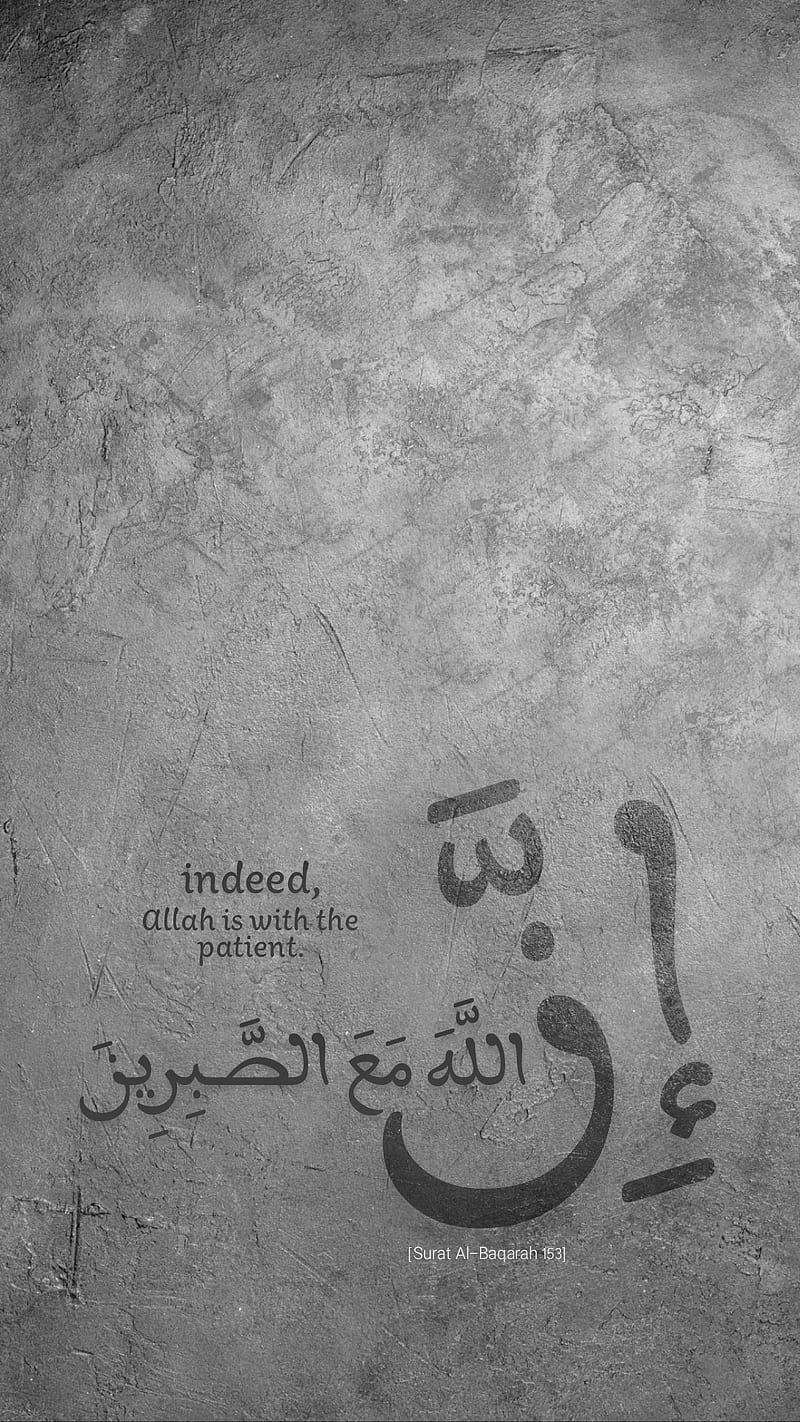 إِنَّ
indeed,
Allah is with the
patient.
اللَّهَ مَعَ الصَّبِرِينَ
[Surat Al-Baqarah 153]